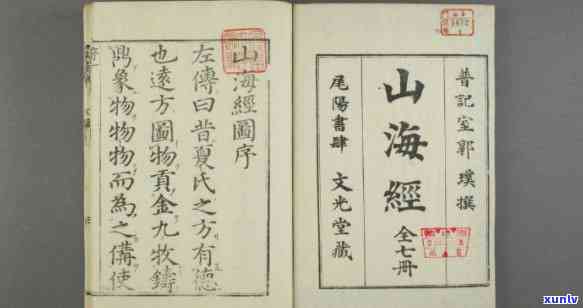 普記室郭璞撰
山海經
全七冊
尾陽書肆 文光堂藏
山海經圖序
左傳曰昔夏氏之方有德
也遠方圖物貢金九牧鑄
鼎象物物物而為之備使
xunlv